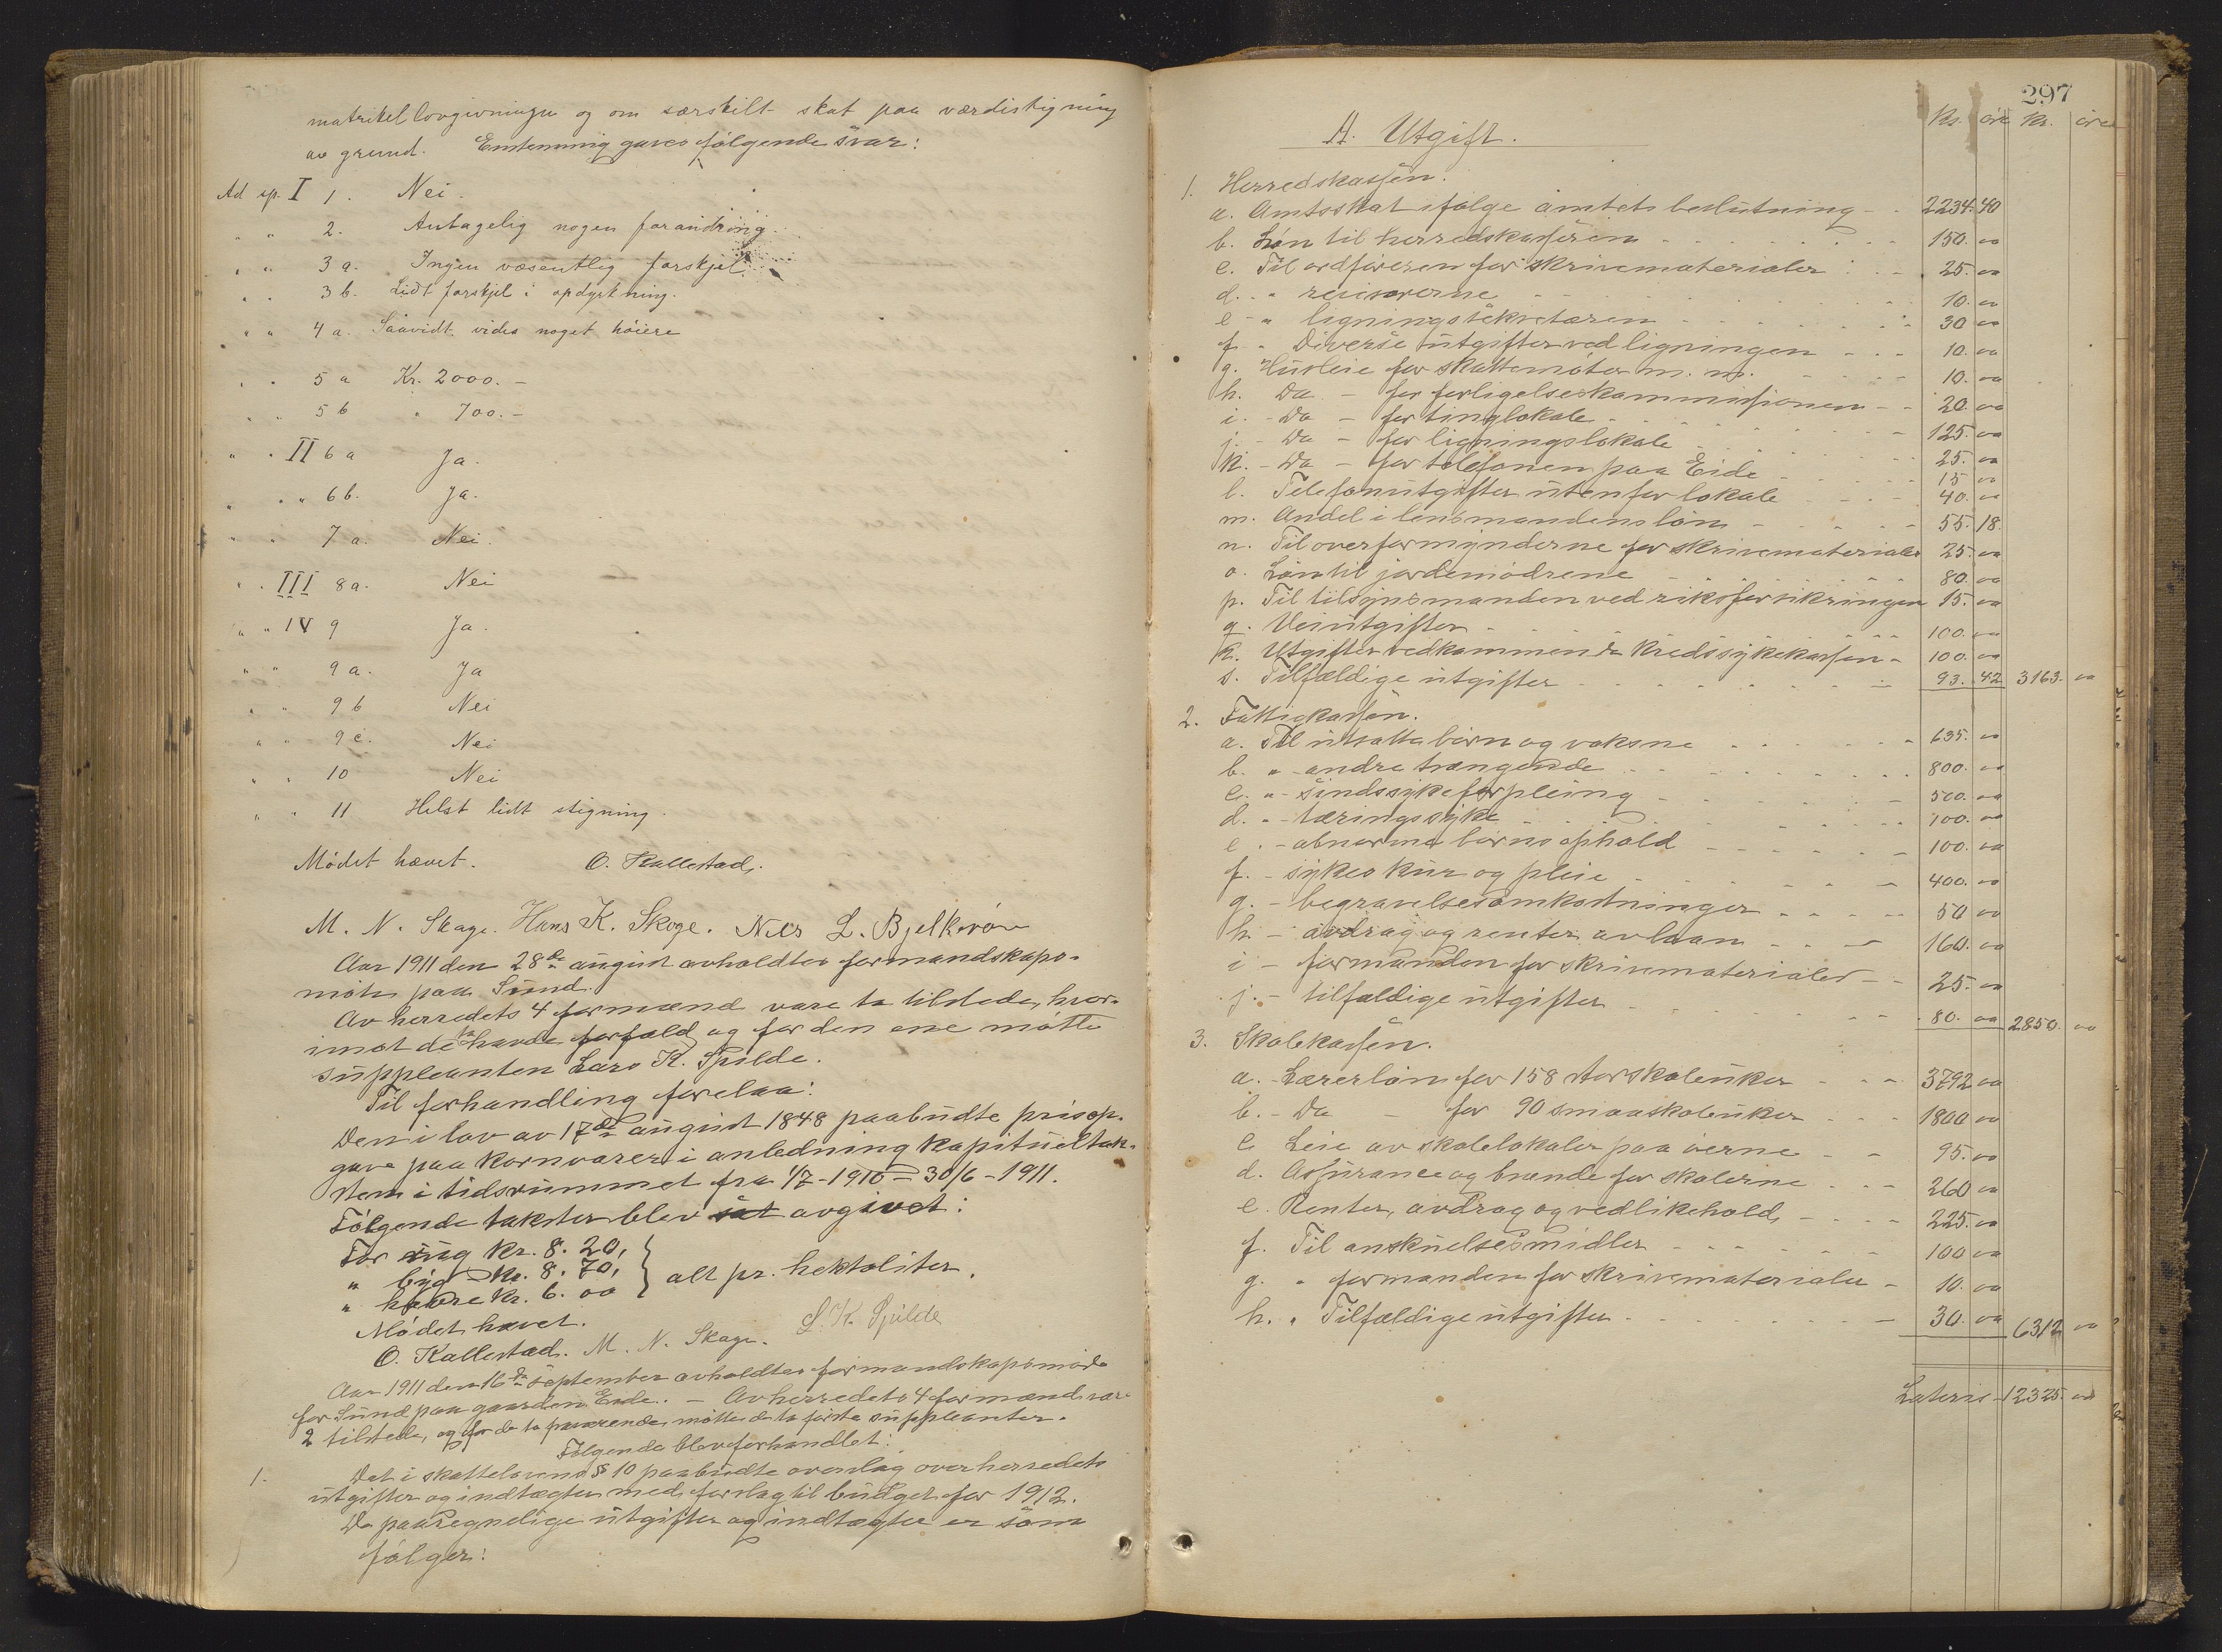 matrikellovgivningen og om særskilt skat paa værdistigning
av grund. Enstemmig gaves følgende svar:
Ad sp. I 1. Nei.
" " 2. Antagelig nogen forandring.
" " 3 a. Ingen væsentlig forskjel.
" " 3 b. Lidt forskjel i opdyrkning.
" " 4 a. Saavidt vides noget høiere
" " 5 a Kr. 2000.-
" " 5 b " 700.-
" " II 6 a Ja.
" " 6 b. Ja.
" " 7 a. Nei.
" " III 8 a. Nei
" " IV 9 Ja.
" " 9 a. Ja
" " 9 b Nei
" " 9 c. Nei
" " 10 Nei
" " 11 Helst lidt stigning.
Mødet hævet. O. Kallestad.
M. N. Skage. Hans K. Skoge. Nils L. Bjelkerøen
Aar 1911 den 28de august avholdtes formandskaps-
møte paa Sund.
Av herredets 4 formænd vare to tilstede, hvor-
imot de to havde forfald og for den ene møtte
suppleanten Lars K. Spilde.
Til forhandling forelaa:
Den i lov av 17de august 1848 paabudte prisop-
gave paa kornvarer i anledning kapitueltak-
sten i tidsrummet fra 1/7-1910 - 30/6-1911.
Følgende takster blev sat avgivet:
For rug kr. 8.20,
" byg kr. 8.70, } alt pr. hektoliter.
" havre kr. 6.00
Mødet hævet.
O. Kallestad. M. N. Skage. L. K. Spilde
Aar 1911 den 16de september avholdtes formandskapsmøde
for Sund paa gaarden Eide. - Av herredets 4 formænd var
2 tilstede, og for de to fraværende møtte de to første suppleanter.
Følgende blev forhandlet:
1. Det i skattelovens § 10 paabudte overslag over herredets
utgifter og indtægter med forslag til budget for 1912.
De paaregnelige utgifter og indtægter er som
følger:
297
A. Utgift.
Kr. øre Kr. øre
1. Herredskassen.
a. Amtsskat ifølge amtets beslutning - 2234. 40
b. Løn til herredskasseren 150. 00
c. Til ordføreren for skrivematerialer 25. 00
d. " revisorerne 10. 00
e - " ligningssekretæren 30 00
f. " Diverse utgifter ved ligningen 10. 00
g. Husleie for skattemøter m. m. 10. 00
h. Do - for forligelseskommissionen 20. 00
i. - Do - for tinglokale 125. 00
j. - Do - for ligningslokale 25. 00
k. - Do - for telefonen paa Eide 15 00
l. Telefonutgifter utenfor lokale 40. 00
m. Andel i lensmandens løn 55. 18.
n. Til overformynderne for skrivematerialer 25. 00
o. Løn til jordemødrene 80. 00
p. Til tilsynsmanden ved riksforsikringen 15. 00
q. Veiutgifter 100. 00
r. Utgifter vedkommende kredssykekassen - 100. 00
s. Tilfældige utgifter 93. 42 3163. 00
2. Fattigkassen.
a. Til utsatte børn og voksne 635. 00
b. " - andre trængende 800. 00
c. " - sindssykeforpleing 500. 00
d. " - tæringssyke 100. 00
e. - abnorme børns ophold 100. 00
f. - sykes kur og pleie 400. 00
g. - begravelsesomkostninger 50 00
h. - avdrag og renter av laan 160. 00
i - formanden for skrivematerialer 25. 00
j. - tilfældige utgifter 80. 00 2850. 00
3. Skolekassen.
a. - Lærerløn for 158 storskoleuker 3792 00
b. - Do - for 90 smaaskoleuker 1800 00
c Leie av skolelokaler paa øerne 95. 00
d. Assurance og brænde for skolerne 260 00
e. Renter, avdrag og vedlikehold 225. 00
f. Til anskuelsesmidler 100 00
g. " formanden for skrivematerialer 10. 00
h. " Tilfældige utgifter 30. 00 6312 00
Lateris - 12325. 00